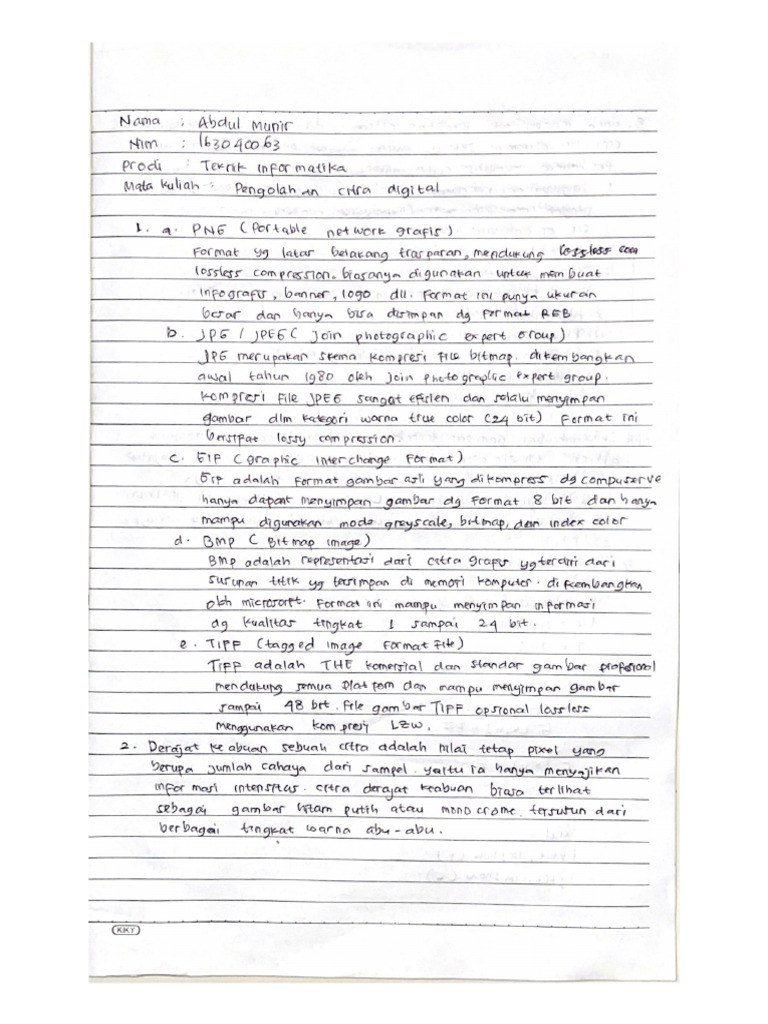 Nama : Abdul Munir
Nim : 163040063
Prodi : Teknik informatika
Mata kuliah : Pengolahan citra digital
1. a. PNG (Portable network grafis)
Format yg latar belakang trasparan, mendukung lossless com
lossless compression. biasanya digunakan untuk membuat
infografis, banner, logo dll. Format ini punya ukuran
besar dan hanya bisa disimpan dg format RGB
b. JPG / JPEG ( Join photographic expert Group)
JPG merupakan skema kompresi file bitmap. dikembangkan
awal tahun 1980 oleh join photographic expert group.
kompresi file JPEG sangat efisien dan selalu menyimpan
gambar dlm kategori warna true color (24 bit) Format ini
bersifat lossy compression.
c. GIF (graphic interchange format)
Gip adalah format gambar asli yang dikompress dg compuserve
hanya dapat menyimpan gambar dg format 8 bit dan hanya
mampu digunakan mode greyscale, bitmap, dan index color
d. BMP ( Bitmap image)
BMP adalah representasi dari citra grafis yg terdiri dari
susunan titik yg tersimpan di memori komputer. di kembangkan
oleh microsoft. Format ini mampu menyimpan informasi
dg kualitas tingkat 1 sampai 24 bit.
e. TIFF (tagged image format File)
TIFF adalah THE komersial dan standar gambar profesional
mendukung semua platform dan mampu menyimpan gambar
sampai 48 bit. File gambar TIFF opsional lossless
menggunakan kompresi LZW.
2. Derajat keabuan sebuah citra adalah nilai tetap pixel yang
berupa jumlah cahaya dari sampel. yaitu ia hanya menyajikan
informasi intensitas. citra derajat keabuan biasa terlihat
sebagai gambar hitam putih atau mono crome. tersusun dari
berbagai tingkat warna abu-abu.
KKY